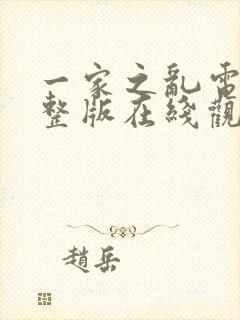 一家之亂電
整版在綫觀
趙岳